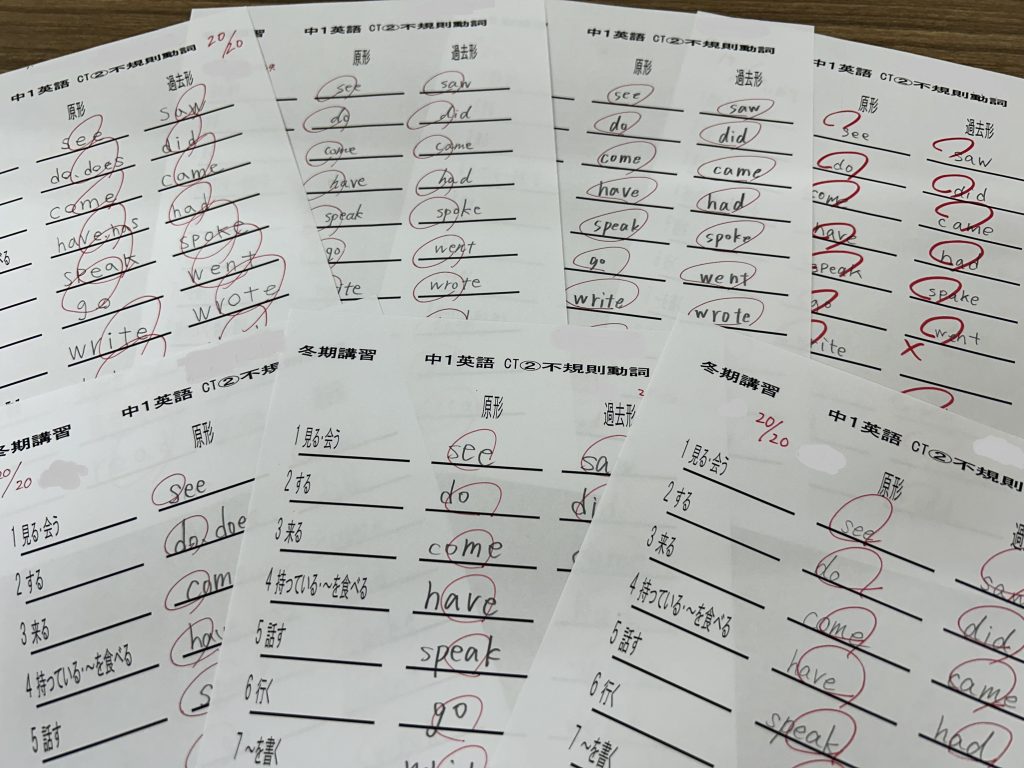 20/20
中1英語 CT②不規則動詞
原形 過去形
see saw
do.does did
came came
have,has had
speak spoke
go went
write wrote
習
中1英語 CT②不規則動詞
原形 過去形
see saw
do did
come came
have had
speak spoke
go went
ite wrote
中1英語 CT②不規則動詞
原形 過去形
see saw
do did
come came
have had
speak spoke
go went
write wrote
中1英語 CT②不規則動詞
原形 過去形
see saw
do did
com came
hav had
speak spoke
went
ite
冬期講習 中1英語 CT②不規
20/20
原形
1 見る・会う see
2 する do. doe
3 来る com
4 持っている・~を食べる ha
5 話す s
冬期講習 中1英語 CT②不規則動詞
原形 過去形
1 見る・会う see sa
2 する do di
3 来る come
4 持っている・~を食べる have
5 話す speak
6 行く go
7 ~を書く
冬期講習 中1英語 CT②不規則
20/20
原形 過
1 見る・会う see saw
2 する do did
3 来る come came
4 持っている・~を食べる have had
5 話す speak
6 行く
7 ~を書く